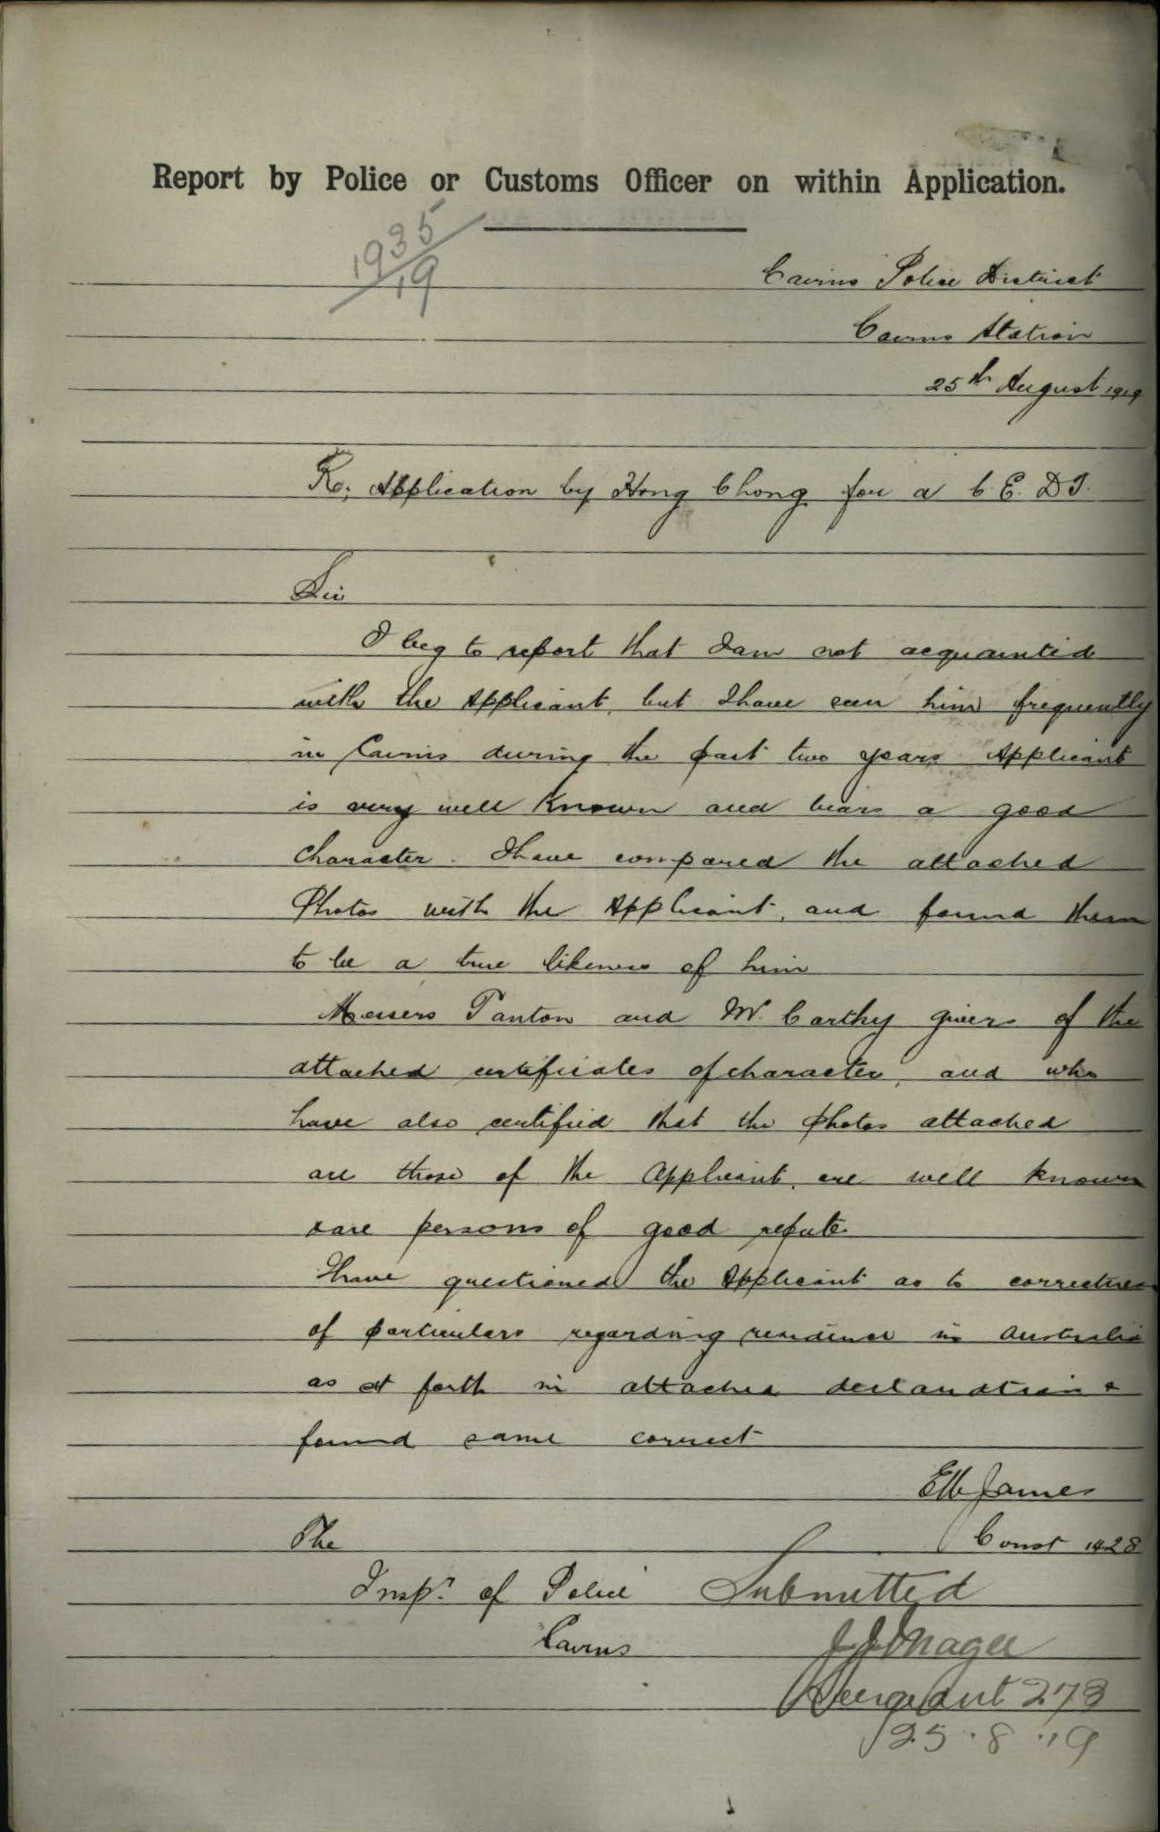 Report by Police or Customs Officer on within Application.
1935/19
Cairns Police District
Cairns Station
25th August 1919
Re; Application by Hong Chong for a C.E.D.T.
Sir
I beg to report that I am not acquainted
with the Applicant, but I have seen him frequently
in Cairns during the past two years Applicant
is very well known and bears a good
character. I have compared the attached
Photos with the Applicant, and found them
to be a true likeness of him
Messers Panton and McCarthy givers of the
attached certificates of character, and who
have also certified that the photos attached
are those of the Applicant, are well known
& are persons of good repute.
I have questioned the Applicant as to correctness
of particulars regarding residence in Australia
as set forth in attached declaration &
found same correct
James
The
Const 1428
Inspr. of Police Submitted
Cairns
J J Magee
Sergeant 273
25.8.19